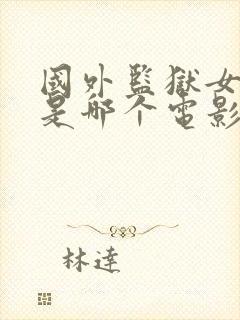 國外監獄女
是哪个電影
林達